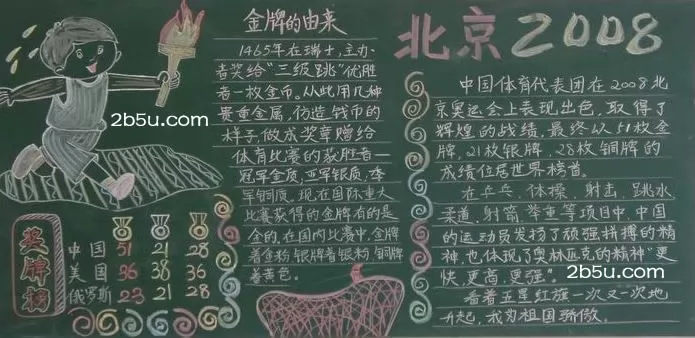 金牌的由来
1465年在瑞士,主办
者奖给"三级跳"优胜
者一枚金币。从此用几种
贵重金属,仿造钱币的
样子,做成奖章赠给
体育比赛的获胜者—
冠军金质,亚军银质,季
军铜质。现在国际重大
比赛获得的金牌有的是
金的,在国内比赛中,金牌
着金粉,银牌着银粉,铜牌
着黄色。
2b5u.com
奖牌榜
中国 51 21 28
美国 36 38 36
俄罗斯 23 21 28
北京2008
中国体育代表团在2008北
京奥运会上表现出色,取得了
辉煌的战绩,最终以51枚金
牌,21枚银牌,28枚铜牌的
成绩位居世界榜首。
在乒乓、体操、射击、跳水
柔道、射箭、举重等项目中,中国
的运动员发扬了顽强拼搏的精
神,也体现了奥林匹克的精神"更
快,更高,更强"。
2b5u.com
看着五星红旗一次又一次地
升起,我为祖国骄傲。